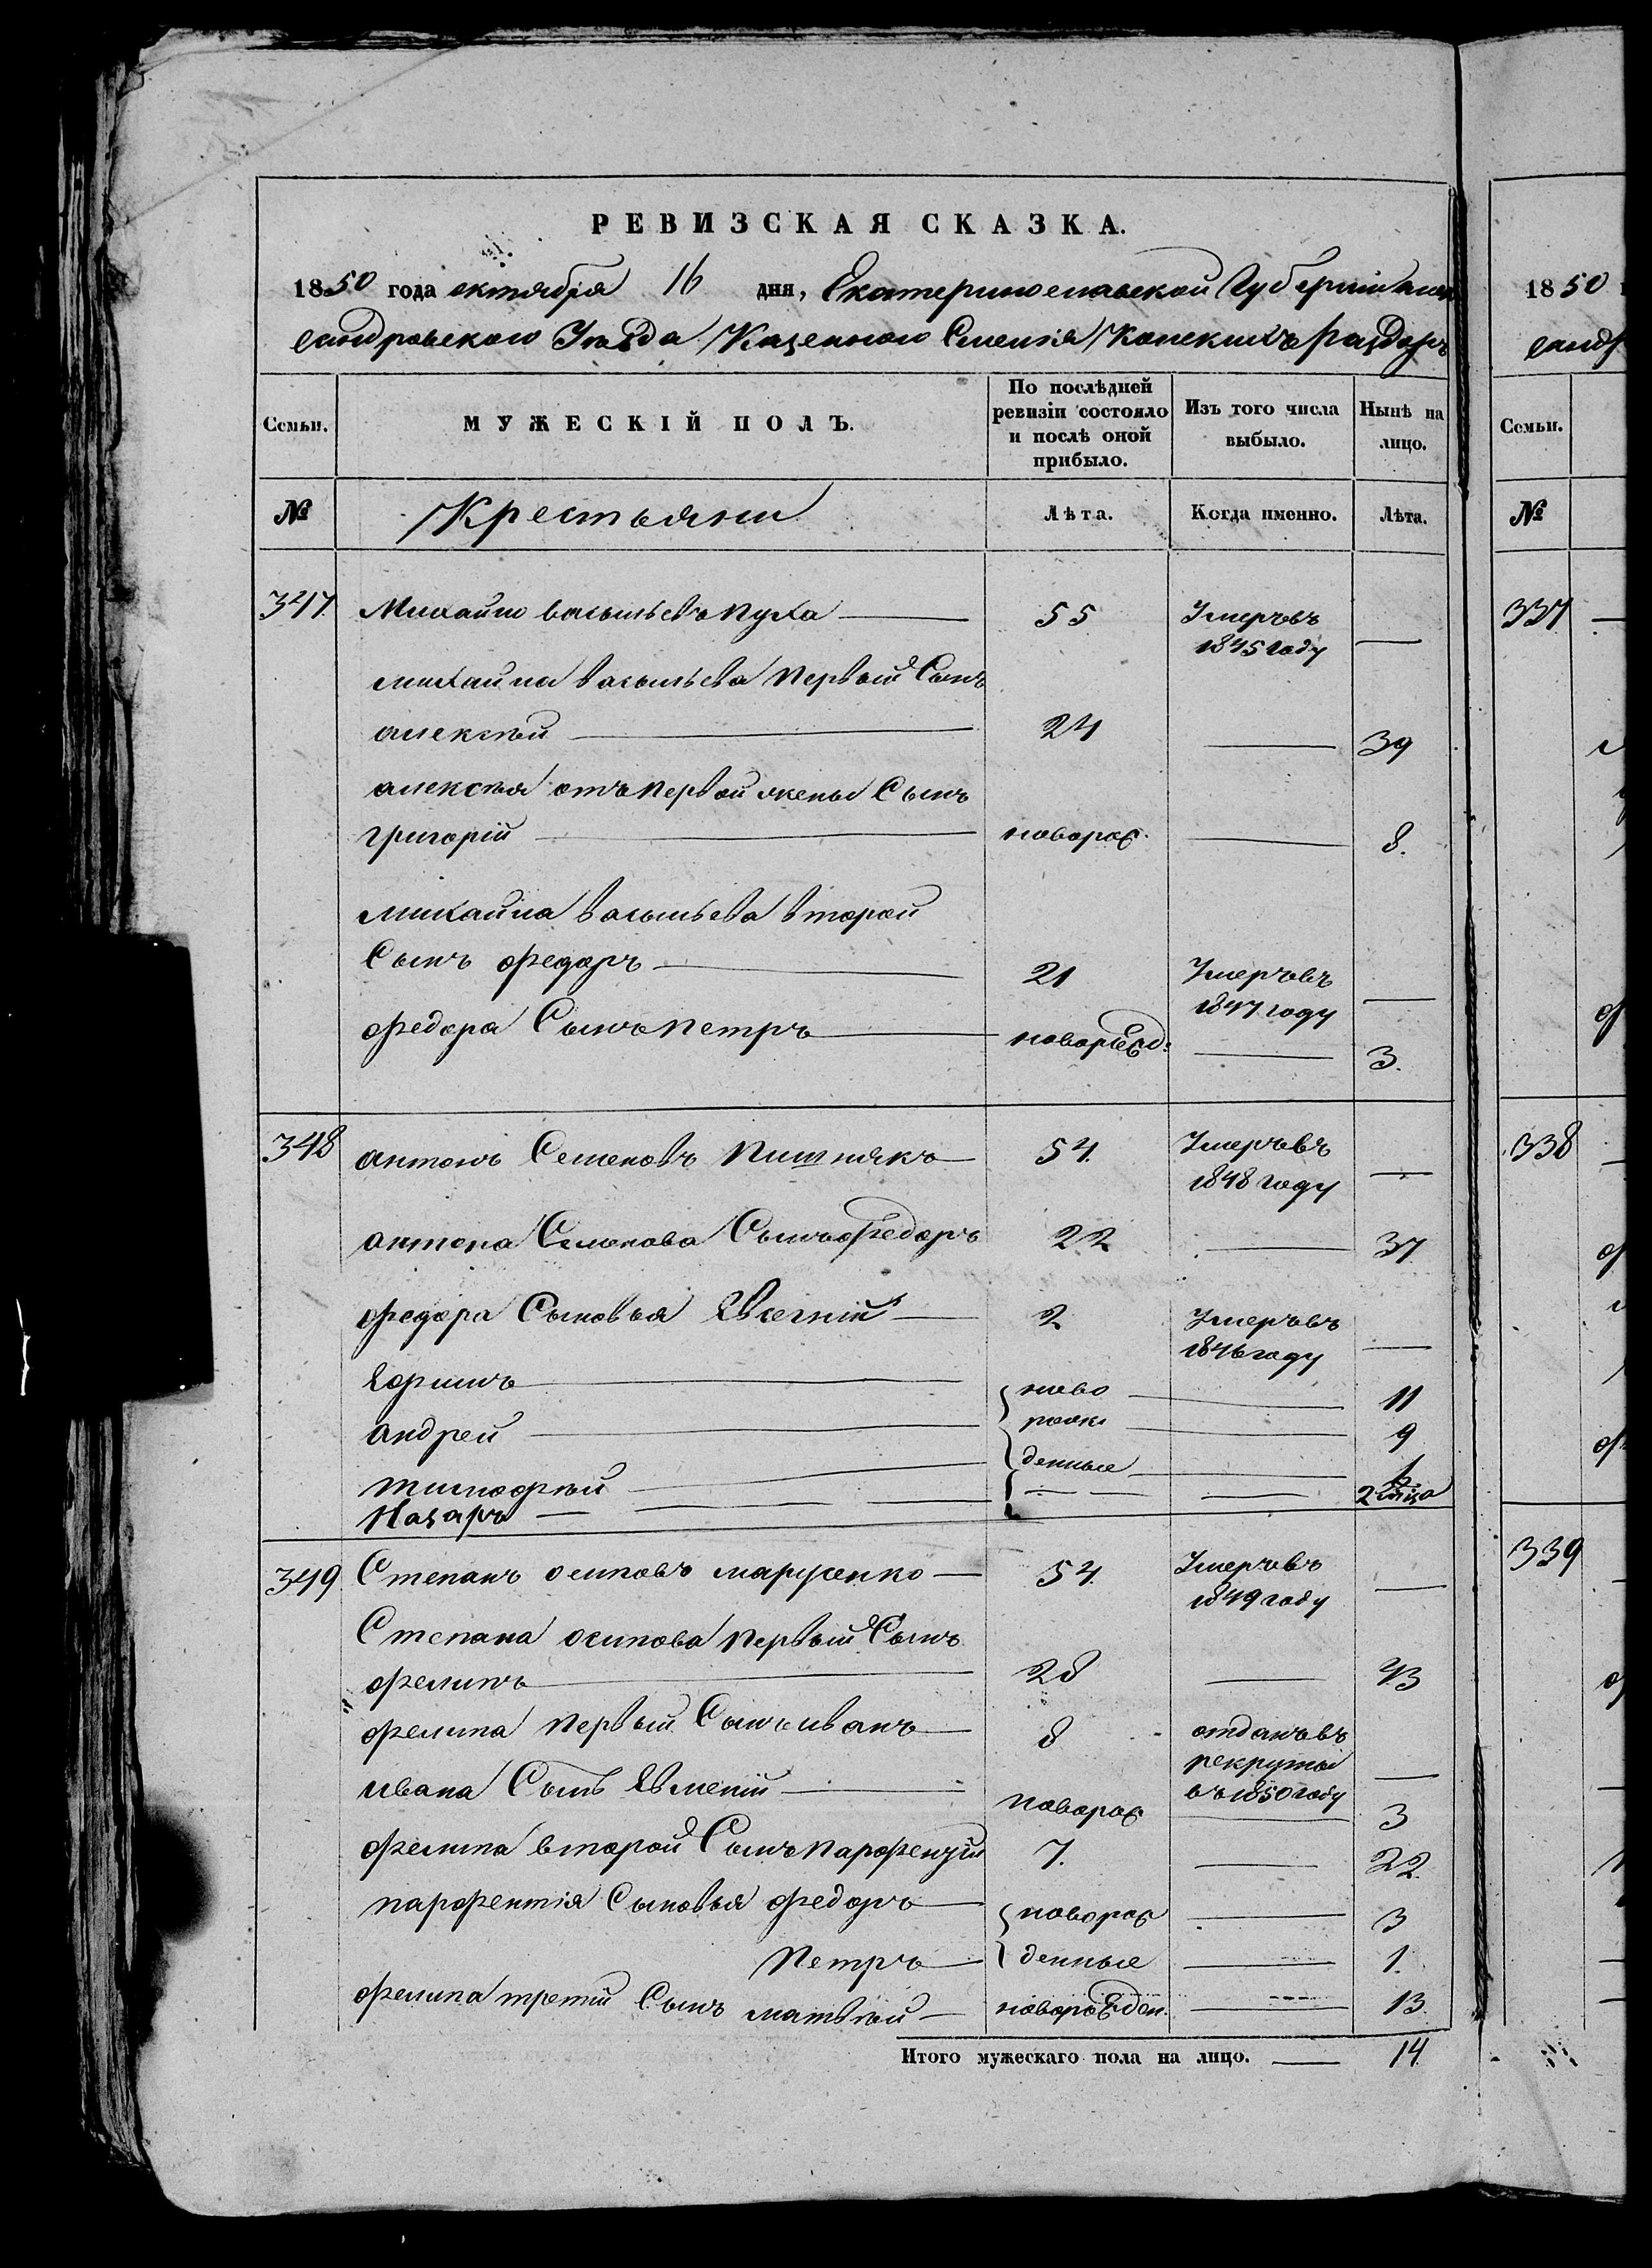 РЕВИЗСКАЯ СКАЗКА.
1850 года октября 16 дня, Екатеринославской Губерніи алек
сандровского Уѣзда Казенного Селенія Конскихъ раздоръ
Семьи.
МУЖЕСКІЙ ПОЛЪ.
По послѣдней
ревизіи состояло
и послѣ оной
прибыло.
Изъ того числа
выбыло.
Нынѣ на
лицо.
№
Крестьяни
Лѣта.
Когда именно.
Лѣта.
347 Михайло васильевъ пуха 55 Умеръ въ
1845 году
михайла васильева первый Сынъ
алексѣй 24 39
алексѣя отъ первой жены Сынъ
григорій новорож. 8.
михайла васильева второй
Сынъ федоръ 21 Умеръ въ
1847 году
федора Сынъ петръ новорожд: 3.
348 антонъ Семеновъ пишнякъ 54. Умеръ въ
1848 году
антона Семенова Сынъ федоръ 22 37
федора Сыновья Евгеній 2 Умеръ въ
1846 году
Ефимъ ново 11
андрей рож 9
тимофѣй денные
Назаръ 2 мѣсца
349 Степанъ осиповъ марусенко 54. Умеръ въ
1849 году
Степана осипова первый Сынъ
филипъ 28 43
филипа первый Сынъ иванъ 8 отданъ въ
рекруты
въ 1850 году
ивана Сынъ Евмений новорож 3
филипа второй Сынъ парфентій 7. 22
парфентія Сыновья федоръ новорож 3
петръ денные 1.
филипа третій Сынъ матвѣй новорожден. 13
Итого мужескаго пола на лицо. 14
1850
санд
Семьи.
№
337
338
339